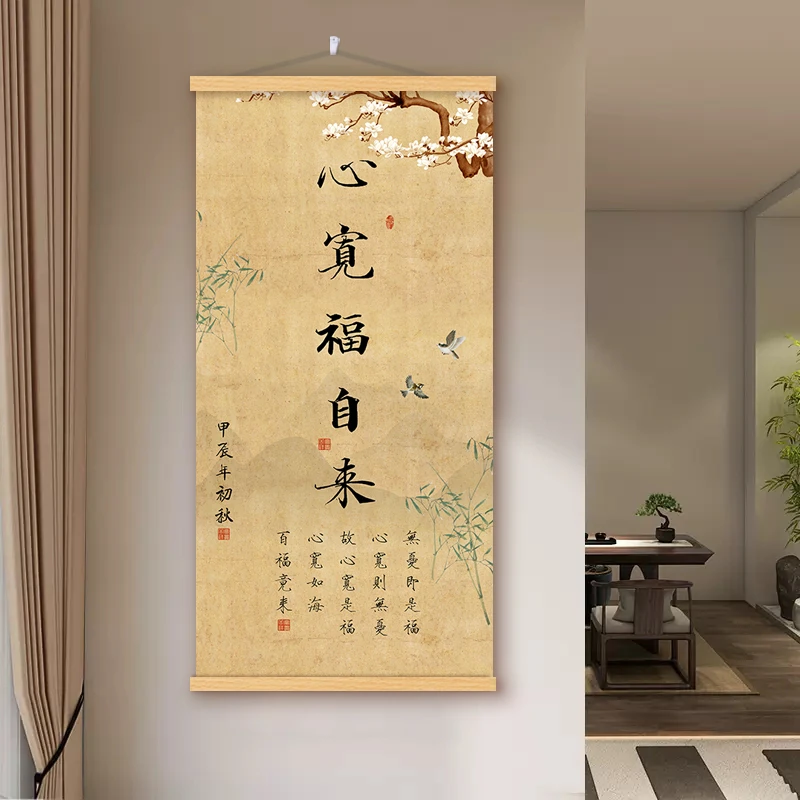 心寬福自来
無憂即是福
心寬則無憂
故心寬是福
心寬如海
百福竟来
甲辰年初秋